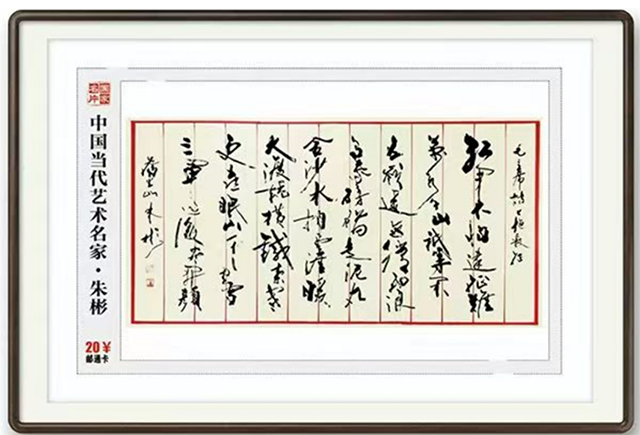 国家名片
中国当代艺术名家·朱彬
20¥
邮通卡
毛主席诗七律长征
红军不怕远征难
万水千山只等闲
五岭逶迤腾细浪
乌蒙磅礴走泥丸
金沙水拍云崖暖
大渡桥横铁索寒
更喜岷山千里雪
三军过后尽开颜
朱彬